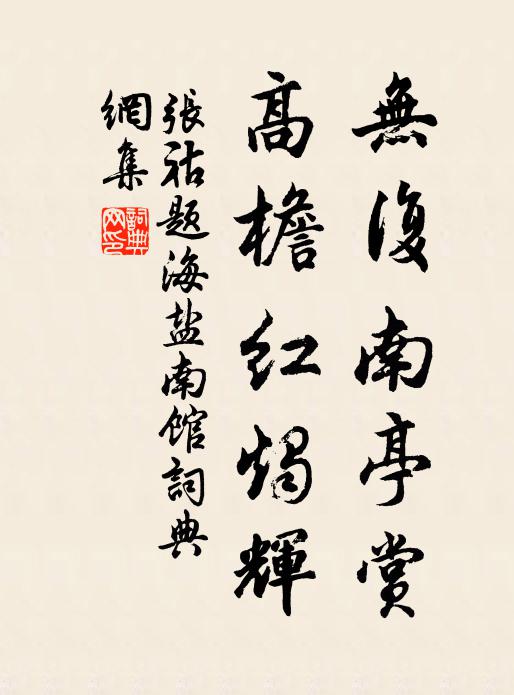 無復南亭賞
高檐红燭輝
張祜題海盐南館詞典
網集
詞典
网印